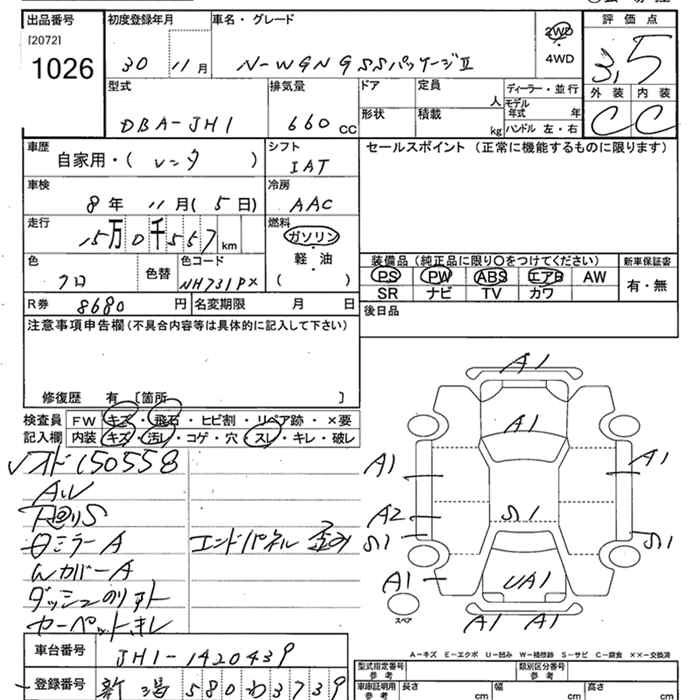 出品番号 初度登録年月 車名・グレード 2WD 評価点
[2072] 4WD 3.5
1026 30 11月 N-WGN G SSパッケージⅡ 外装 内装
型式 排気量 ドア 定員 人 ディーラー・並行
モデル年式 年
DBA-JH1 660 CC 形状 積載 kg ハンドル 左・右 C C
車歴 シフト セールスポイント (正常に機能するものに限ります)
自家用・( リース ) IAT
車検 冷房
8年 11月(5日) AAC
走行 燃料
15万0千557km ガソリン
軽・油
( )
色 色替 色コード
クロ NH731PX
装備品 (純正品に限り〇をつけてください) 新車保証書
PS PW ABS エアB AW 有・無
SR ナビ TV カワ
R券 8680円 名変期限 月 日 後日品
注意事項申告欄 (不具合内容等は具体的に記入して下さい)
修復歴 有 [箇所 ]
検査員 FW キズ・飛石・ヒビ割・リペア跡・×要
記入欄 内装 キズ・汚レ・コゲ・穴・スレ・キレ・破レ
メオド150558
AW
下回りS
ミラーA エンドパネル歪み
カバーA
ダッシュのリオト
カーペットキレ
A1
A1
A1 A1
A2 S1
S1 S1
A1 UA1
スペア
A1 A1
A-キズ E-エクボ U-凹み W-補修跡 S-サビ C-腐食 ××-交換済
車台番号 JH1-1420439 型式指定番号 参考 類別区分番号 参考
登録番号 新潟580わ3739 車庫証明用 参考 長さ cm 幅 cm 高さ cm